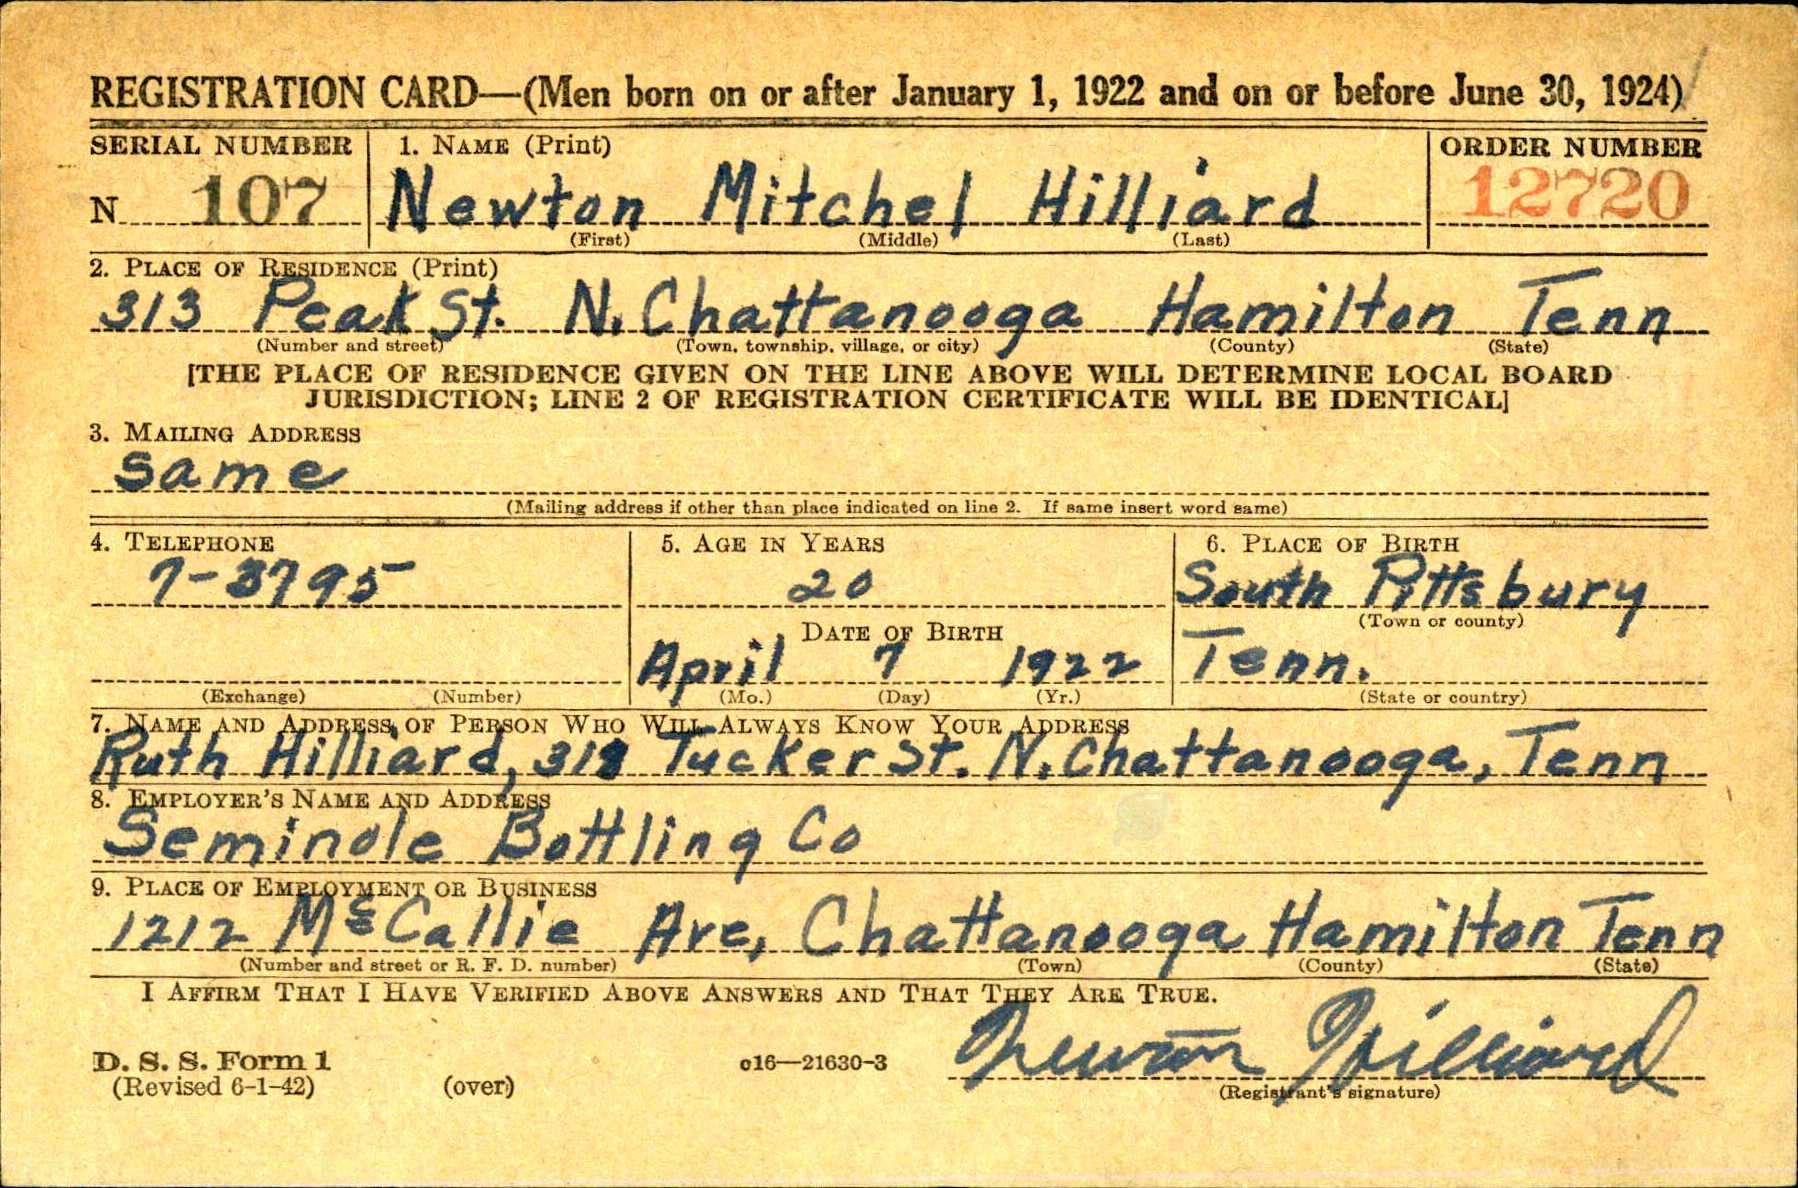 REGISTRATION CARD—(Men born on or after January 1, 1922 and on or before June 30, 1924)
SERIAL NUMBER 1. NAME (Print) ORDER NUMBER
N 107 Newton Mitchel Hilliard 12720
(First) (Middle) (Last)
2. PLACE OF RESIDENCE (Print)
313 Peak St. N. Chattanooga Hamilton Tenn
(Number and street) (Town, township, village, or city) (County) (State)
[THE PLACE OF RESIDENCE GIVEN ON THE LINE ABOVE WILL DETERMINE LOCAL BOARD
JURISDICTION; LINE 2 OF REGISTRATION CERTIFICATE WILL BE IDENTICAL]
3. MAILING ADDRESS
Same
(Mailing address if other than place indicated on line 2. If same insert word same)
4. TELEPHONE 5. AGE IN YEARS 6. PLACE OF BIRTH
7-3795 20 South Pittsbury
(Town or county)
DATE OF BIRTH
April 7 1922 Tenn.
(Exchange) (Number) (Mo.) (Day) (Yr.) (State or country)
7. NAME AND ADDRESS OF PERSON WHO WILL ALWAYS KNOW YOUR ADDRESS
Ruth Hilliard, Tucker St. N. Chattanooga, Tenn
8. EMPLOYER'S NAME AND ADDRESS
Seminole Bottling Co
9. PLACE OF EMPLOYMENT OR BUSINESS
1212 McCallie Ave, Chattanooga Hamilton Tenn
(Number and street or R. F. D. number) (Town) (County) (State)
I AFFIRM THAT I HAVE VERIFIED ABOVE ANSWERS AND THAT THEY ARE TRUE.
Newton Hilliard
D. S. S. Form 1 c16—21630-3
(Revised 6-1-42) (over) (Registrant's signature)